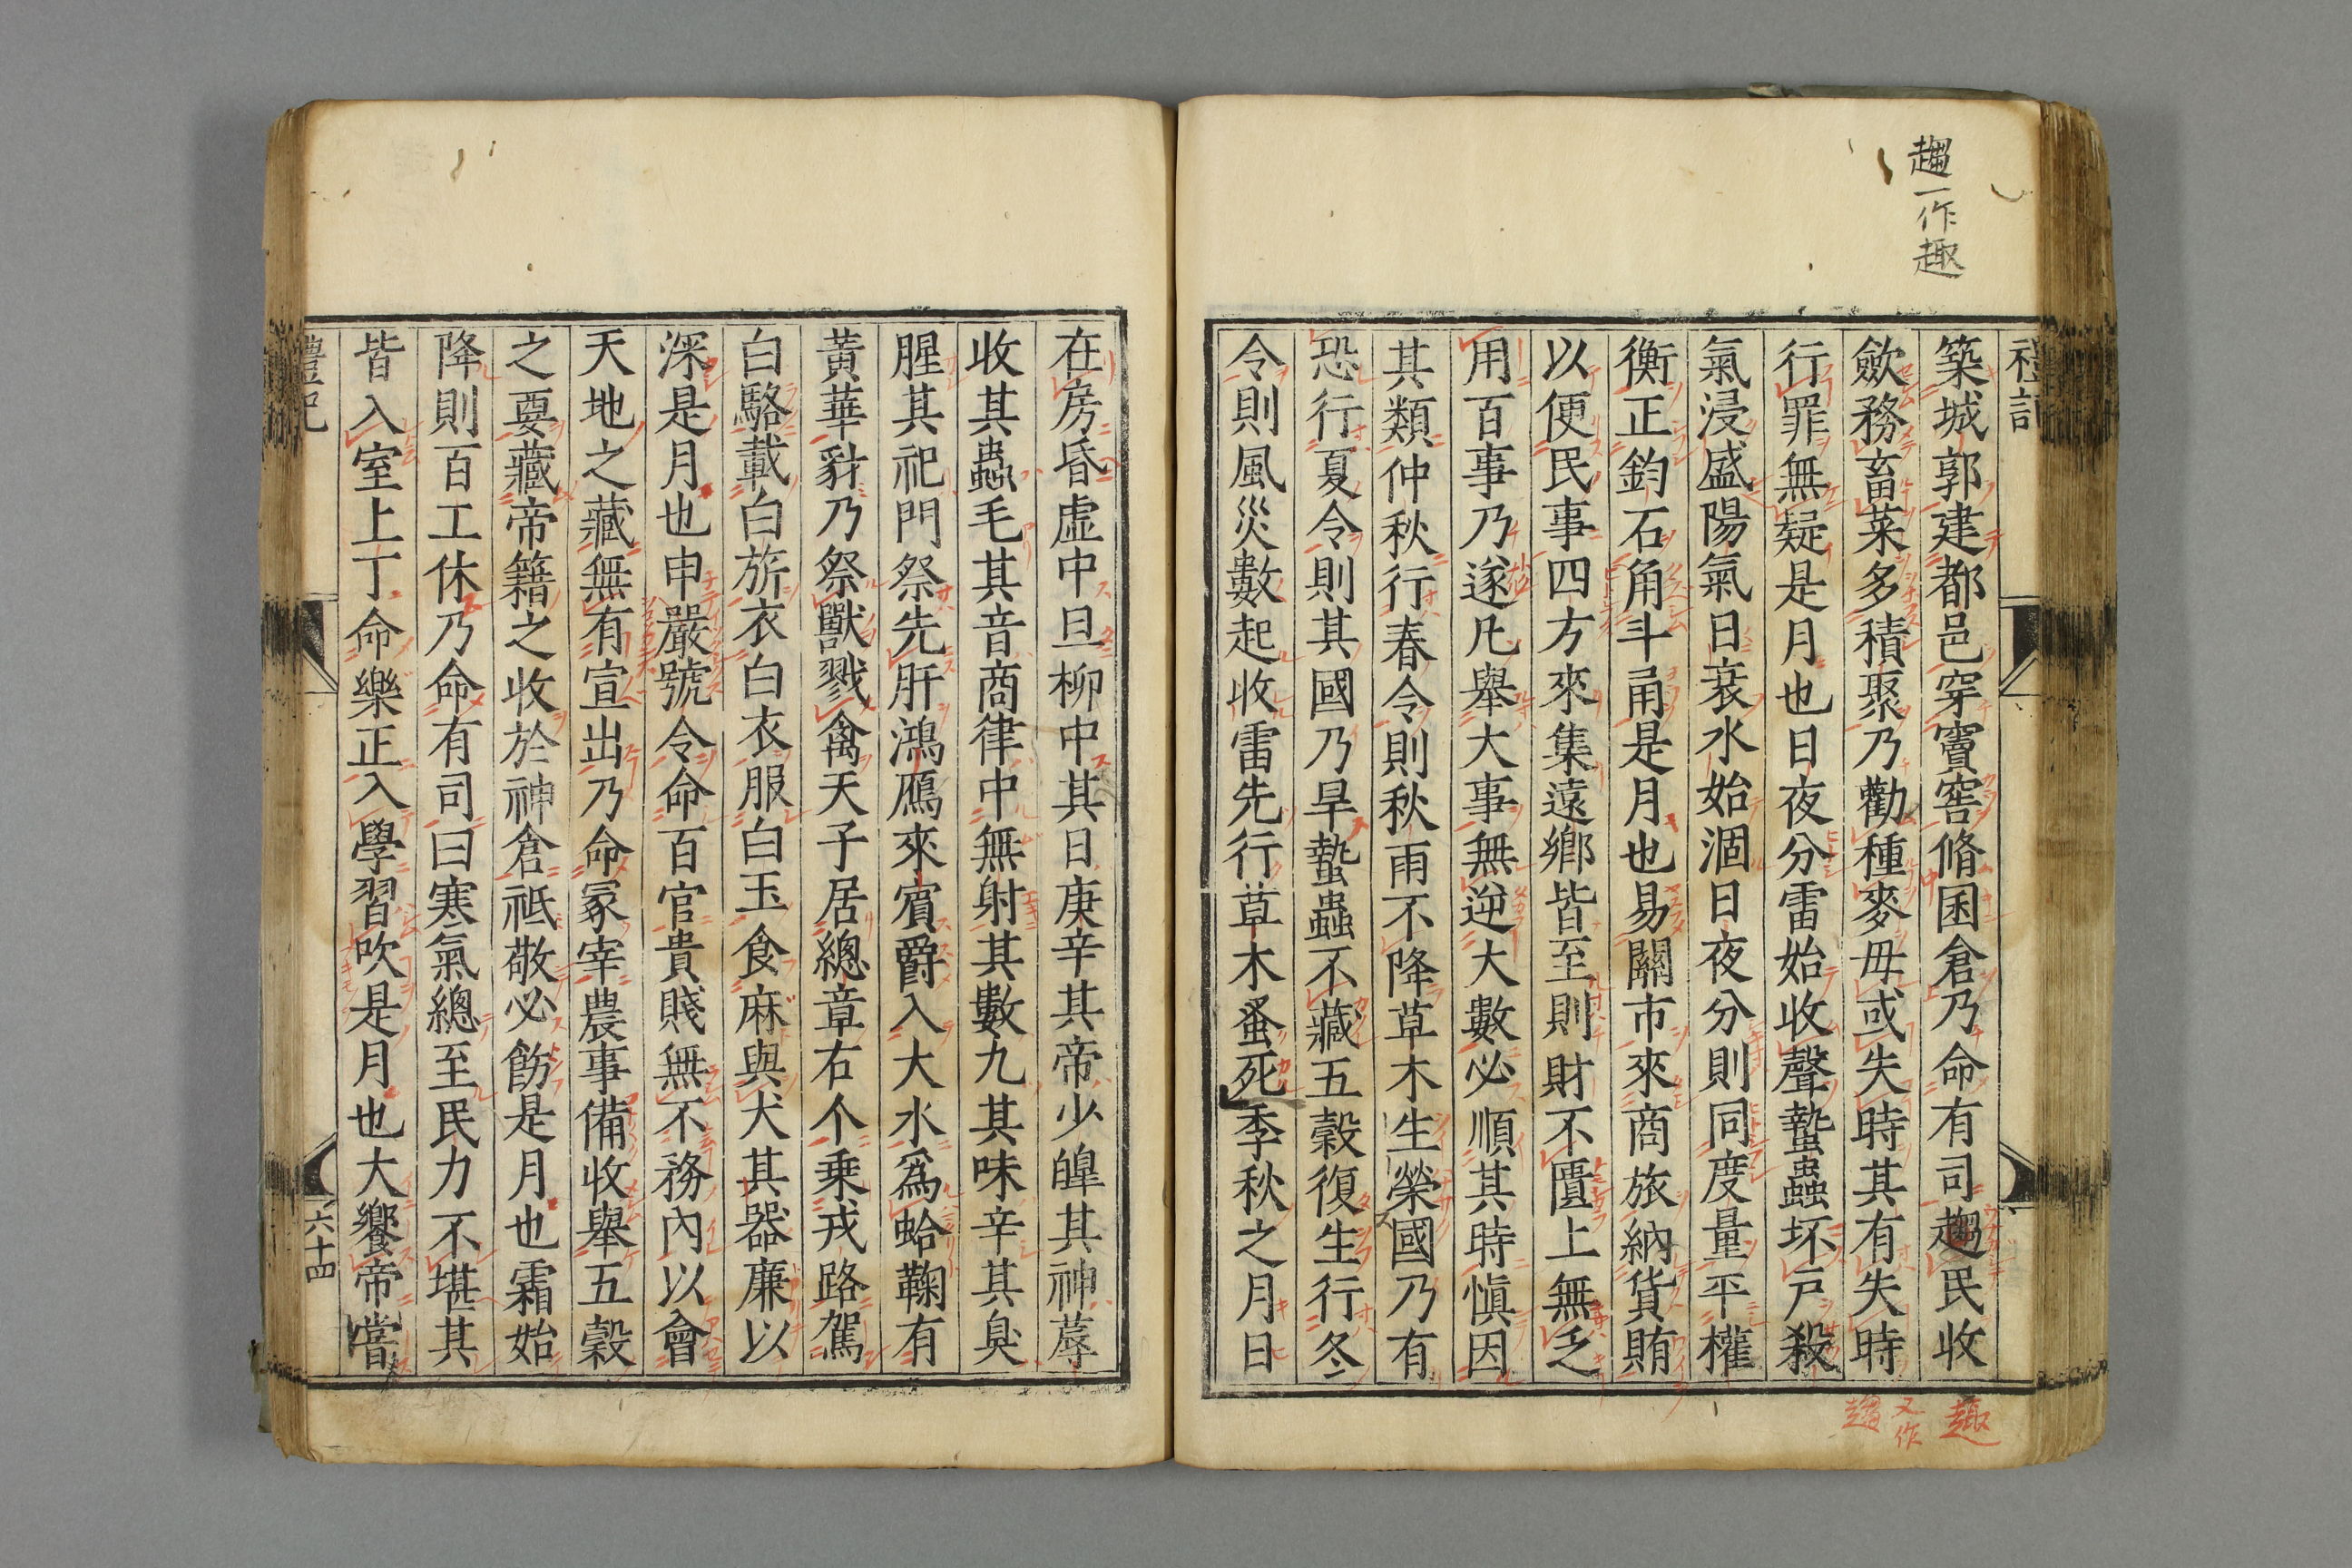 趨一作趣
禮記
築城郭建都邑穿竇窖脩囷倉乃命有司趨民收
斂務畜菜多積聚乃勸種麥毋或失時其有失時
行罪無疑是月也日夜分雷始收聲蟄蟲坏戶殺
氣浸盛陽氣日衰水始涸日夜分則同度量平權
衡正鈞石角斗甬是月也易關市來商旅納貨賄
以便民事四方來集遠鄉皆至則財不匱上無乏
用百事乃遂凡舉大事無逆大數必順其時愼因
其類仲秋行春令則秋雨不降草木生榮國乃有
恐行夏令則其國乃旱蟄蟲不藏五穀復生行冬
令則風災數起收雷先行草木蚤死季秋之月日
趣
又作
趨
在房昏虛中旦柳中其日庚辛其帝少皥其神蓐
收其蟲毛其音商律中無射其數九其味辛其臭
腥其祀門祭先肝鴻鴈來賓爵入大水爲蛤鞠有
黃華豺乃祭獸戮禽天子居總章右个乗戎路駕
白駱載白旂衣白衣服白玉食麻與犬其器廉以
深是月也申嚴號令命百官貴賤無不務內以會
天地之藏無有宣出乃命冢宰農事備收舉五穀
之要藏帝籍之收於神倉祗敬必飭是月也霜始
降則百工休乃命有司曰寒氣總至民力不堪其
皆入室上丁命樂正入學習吹是月也大饗帝嘗
禮記
六十四